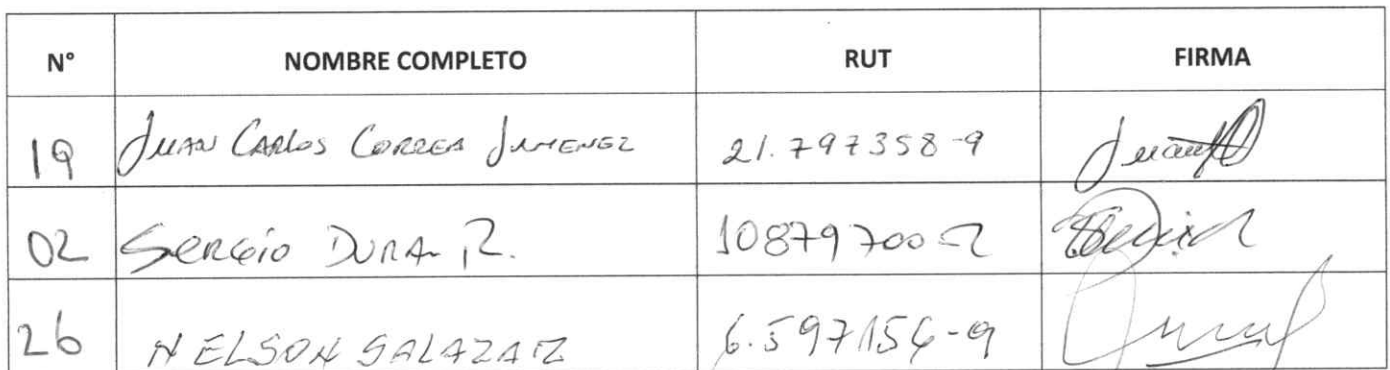 N° NOMBRE COMPLETO RUT FIRMA
19 Juan Carlos Correa Jimenez 21.797358-9
02 Sergio Duran R. 10879700-
26 NELSON SALAZAR 6.597156-9